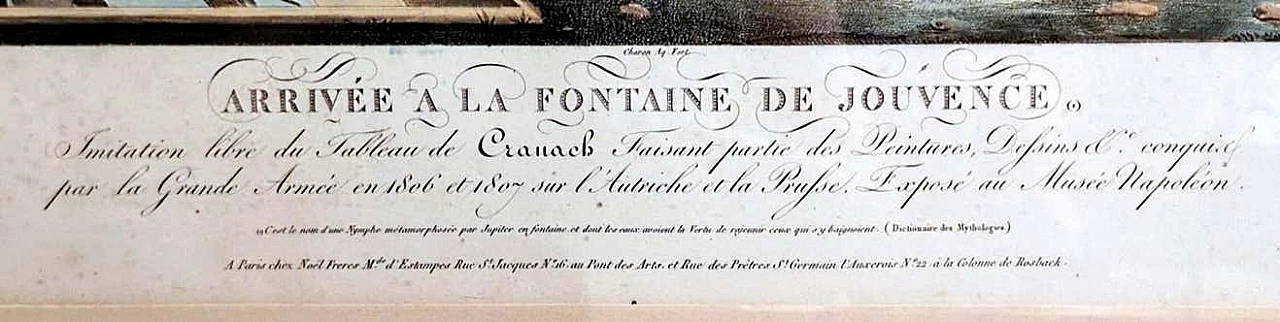 Charon Aq. Fort.
ARRIVÉE A LA FONTAINE DE JOUVENCE (1)
Imitation libre du Tableau de Cranach Faisant partie des Peintures, Dessins &c. conquis
par la Grande Armée en 1806 et 1807 sur l'Autriche et la Prusse. Exposé au Musée Napoléon.
(1) C'est le nom d'une Nymphe métamorphosée par Jupiter en fontaine et dont les eaux avoient la Vertu de rajeunir ceux qui s'y baignoient. (Dictionaire des Mythologies)
A Paris chez Noël Freres Mds. d'Estampes Rue St. Jacques No. 16. au Pont des Arts. et Rue des Prêtres St. Germain l'Auxerois No. 22 à la Colonne de Rosback.